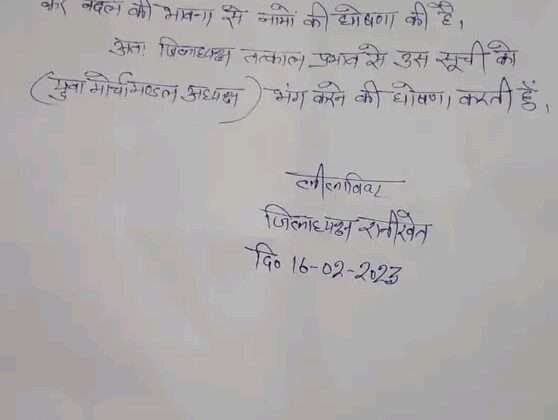 कर बदले की भावना से नामों की घोषणा की है,
अतः जिलाध्यक्ष तत्काल प्रभाव से उस सूची को
(युवा मोर्चा मण्डल अध्यक्ष) भंग करने की घोषणा करती हूँ,
जिलाध्यक्ष रानीखेत
दि० 16-02-2023